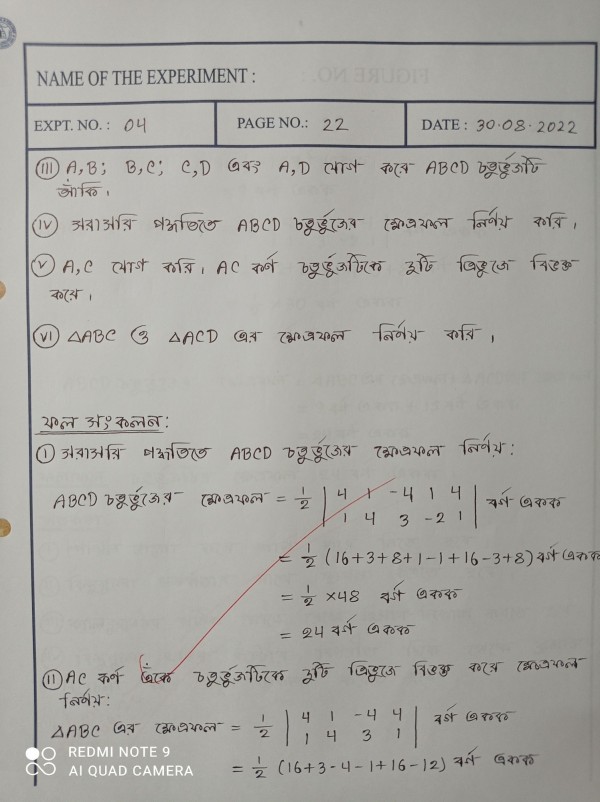 NAME OF THE EXPERIMENT :
EXPT. NO. : 04 PAGE NO.: 22 DATE : 30.08.2022
(III) A,B; B,C; C,D এবং A,D যোগ করে ABCD চতুর্ভুজটি
আঁকি।
(IV) সরাসরি পদ্ধতিতে ABCD চতুর্ভুজের ক্ষেত্রফল নির্ণয় করি।
(V) A,C যোগ করি। AC কর্ণ চতুর্ভুজটিকে দুটি ত্রিভুজে বিভক্ত
করে।
(VI) △ABC ও △ACD এর ক্ষেত্রফল নির্ণয় করি।
ফল সংকলন:
(I) সরাসরি পদ্ধতিতে ABCD চতুর্ভুজের ক্ষেত্রফল নির্ণয়:
ABCD চতুর্ভুজের ক্ষেত্রফল = 1/2 | 4 1 -4 1 4 | বর্গ একক
1 4 3 -2 1
= 1/2 (16+3+8+1-1+16-3+8) বর্গ একক
= 1/2 ×48 বর্গ একক
= 24 বর্গ একক
(II) AC কর্ণ এঁকে চতুর্ভুজটিকে দুটি ত্রিভুজে বিভক্ত করে ক্ষেত্রফল
নির্ণয়:
△ABC এর ক্ষেত্রফল = 1/2 | 4 1 -4 4 | বর্গ একক
1 4 3 1
= 1/2 (16+3-4-1+16-12) বর্গ একক
REDMI NOTE 9
AI QUAD CAMERA